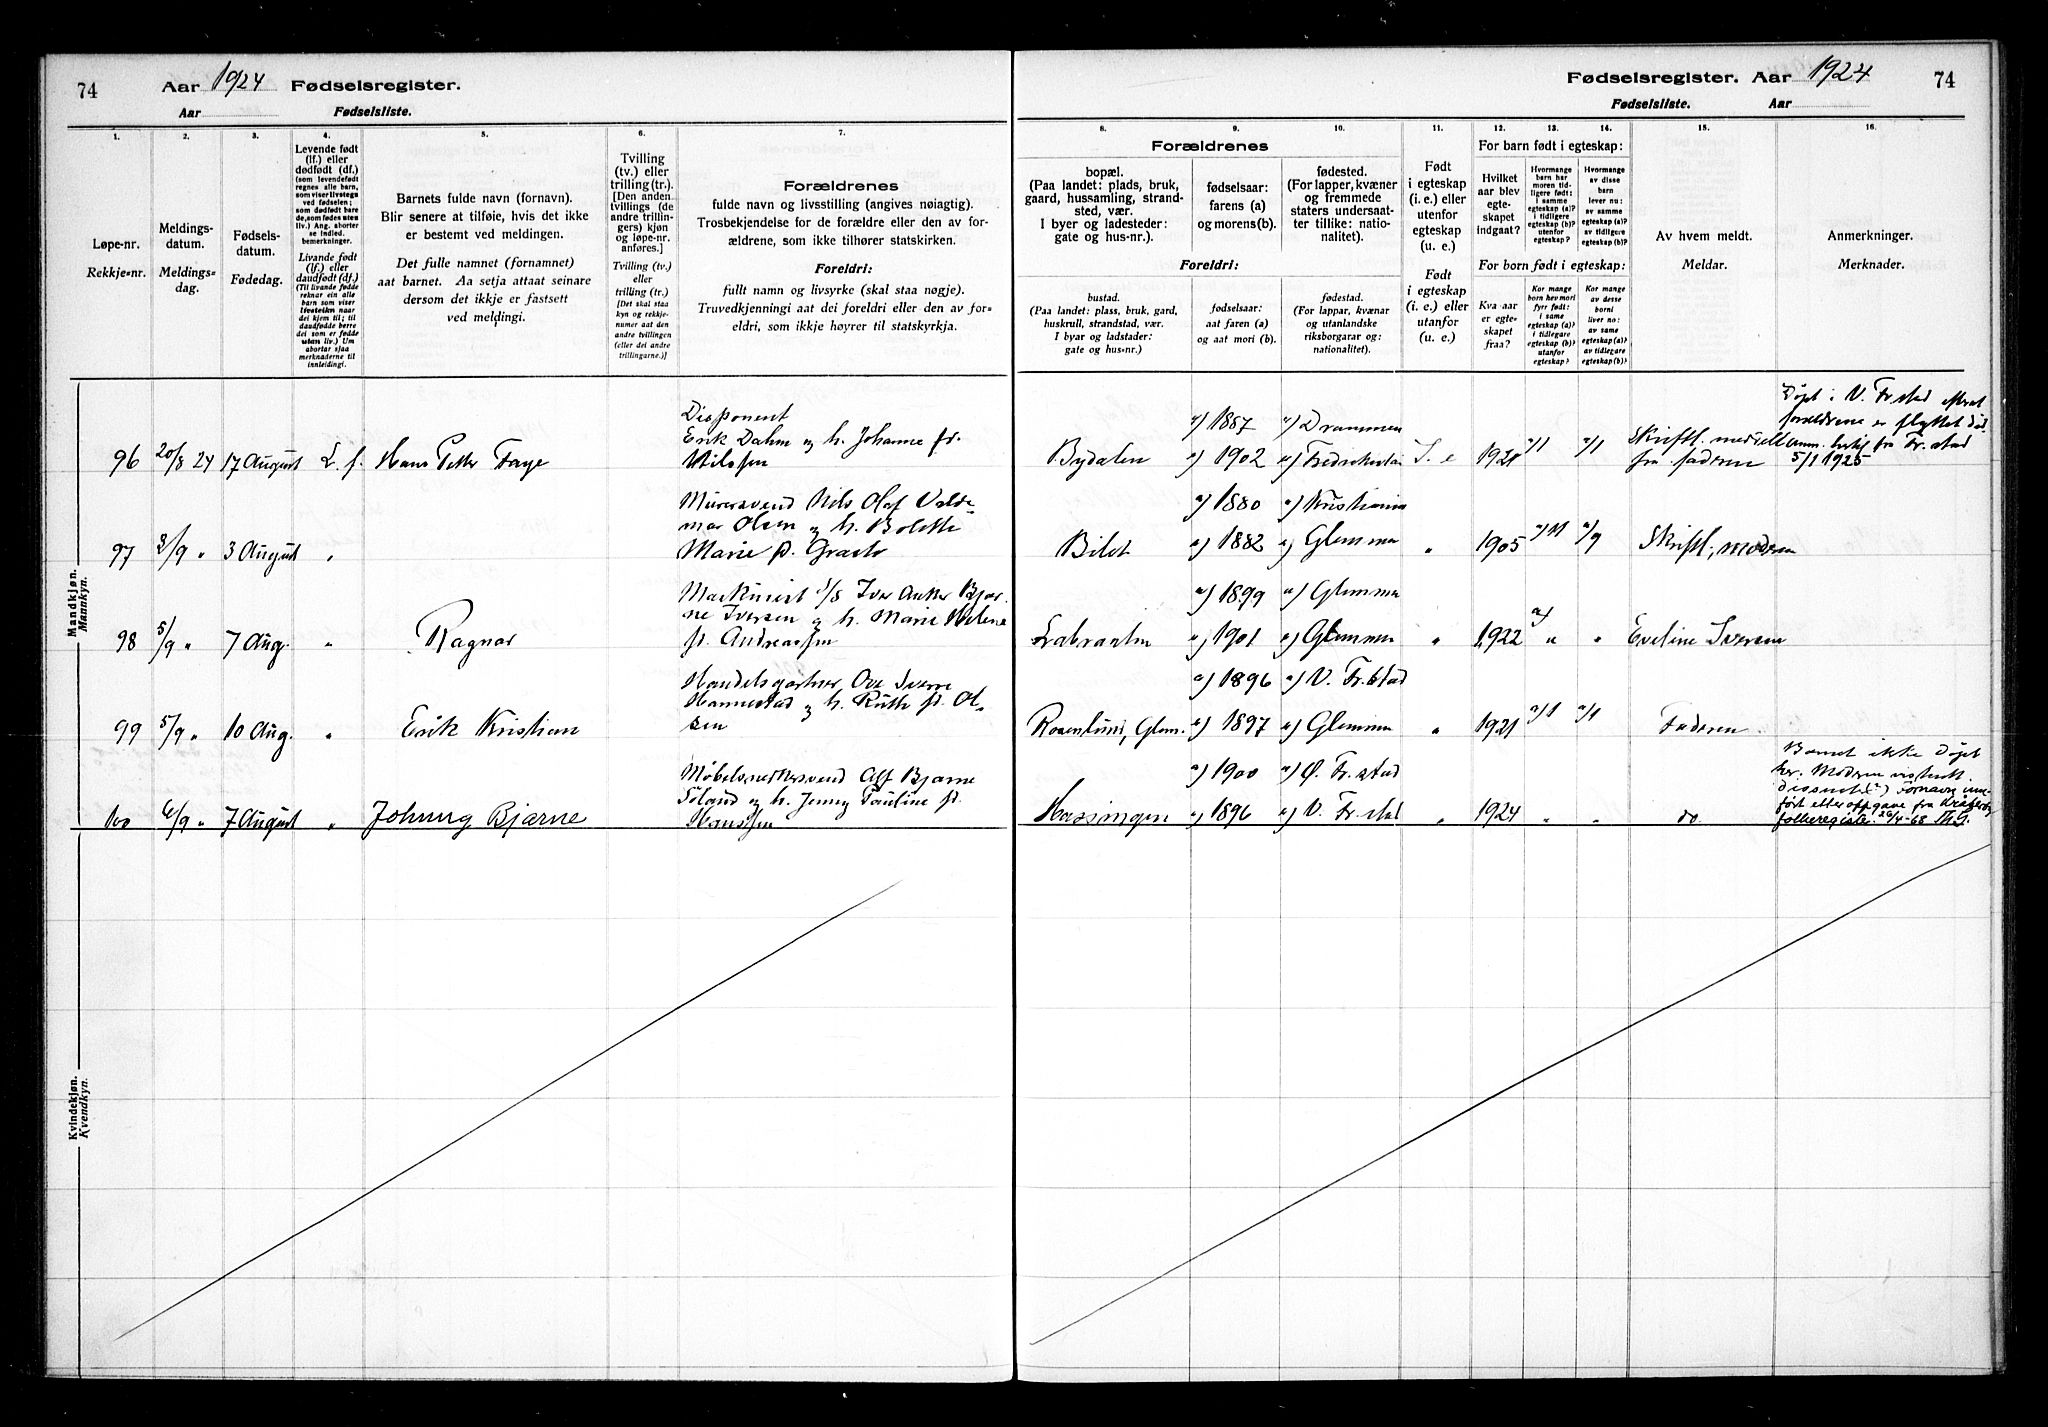 74
Aar 1924 Fødselsregister.
Aar Fødselsliste.
Fødselsregister. Aar 1924
Fødselsliste. Aar
74
1. 2. 3. 4. 5. 6. 7.
Løpe-nr.
Rekkje-nr.
Meldings-
datum.
Meldings-
dag.
Fødsels-
datum.
Fødedag.
Levende født
(lf.) eller
dødfødt (df.)
(som levendefødt
regnes alle barn,
som viser livstegn
ved fødselen;
som dødfødt bare
de, som fødes uten
liv.) Ang. aborter
se indled.
bemerkninger.
Livande født
(lf.) eller
daudfødt (df.)
(Til livande fødde
reknar ein alle
barn som viser
livsteikn naar
dei kjem til; til
daudfødde berre
dei som er fødde
utan liv.) Um
abortar sjaa
merknaderne til
innleidingi.
Barnets fulde navn (fornavn).
Blir senere at tilføie, hvis det ikke
er bestemt ved meldingen.
Det fulle namnet (fornamnet)
aat barnet. Aa setja attaat seinare
dersom det ikkje er fastsett
ved meldingi.
Tvilling
(tv.) eller
trilling (tr.).
[Den anden
tvillings (de
andre trillin-
gers) kjøn
og løpe-nr.
anføres.]
Tvilling (tv.)
eller
trilling (tr.)
[Det skal staa
kyn og rekkje-
numer aat den
andre tvillingen
(eller dei andre
trillingarne.)]
Forældrenes
fulde navn og livsstilling (angives nøiagtig).
Trosbekjendelse for de forældre eller den av for-
ældrene, som ikke tilhører statskirken.
Foreldri:
fullt namn og livsyrke (skal staa nøgje).
Truvedkjenningi aat dei foreldri eller den av for-
eldri, som ikkje høyrer til statskyrkja.
8. 9. 10. 11. 12. 13. 14. 15. 16.
Forældrenes
bopæl.
(Paa landet: plads, bruk,
gaard, hussamling, strand-
sted, vær.
I byer og ladesteder:
gate og hus-nr.).
fødselsaar:
farens (a)
og morens (b).
fødested.
(For lapper, kvæner
og fremmede
staters undersaat-
ter tillike: natio-
nalitet).
Foreldri:
bustad.
(Paa landet: plass, bruk, gard,
huskrull, strandstad, vær.
I byar og ladstader:
gate og hus-nr.)
fødselsaar:
aat faren (a)
og aat mori (b).
fødestad.
(For lappar, kvænar
og utanlandske
riksborgarar og:
nationalitet).
Født
i egteskap
(i. e.) eller
utenfor
egteskap
(u. e.)
Født
i egteskap
(i. e.) eller
utanfor
(u. e.)
For barn født i egteskap:
Hvilket
aar blev
egte-
skapet
indgaat?
Hvormange
barn har
moren tid-
ligere født:
i samme
egteskap (a)?
i tidligere
egteskap (b)?
utenfor
egteskap?
Hvormange
av disse
barn
lever nu:
av samme
egteskap (a)?
av tidligere
egteskap (b)?
For born født i egteskap:
Kva aar
er egte-
skapet
fraa?
Kor mange
born hev mori
fyrr født:
i same
egteskap (a)?
i tidlegare
egteskap (b)?
utanfor
egteskap?
Kor mange
av desse
borni
liver no:
av same
egteskap (a)?
av tidlegare
egteskap (b)?
Av hvem meldt.
Meldar.
Anmerkninger.
Merknader.
Mandkjøn.
Mannkyn.
Kvindekjøn.
Kvendkyn.
96 20/8 24 17 August L. f. Hans Petter Faye
Disponent
Erik Dahm og h. Johanne f.
Nilssen
Bydalen a) 1887 a) Drammen
1902 Fredrikstad I. e 1921 a/1 a/1
Skriftl. meldt
fra faderen
Døpt i V. Fr.stad efterat
forældrene er flyttet
fra Fr. stad
5/1 1925
97 3/9 " 3 August "
Murersvend Nils Olaf Valde-
mar Olsen og h. Bolette
Marie f.
a) 1880 a) Kristiania
1882 Glemmen " 1905 a/11 a/9 Skriftl., moderen
98 5/9 " 7 Aug. " Ragnar
Maskinist Iver Anker Bjar-
ne Iversen og h. Marie Helene
f. Andreassen
a) 1899 a) Glemmen
1901 Glemmen " 1922 a) " " Eveline Iversen
99 5/9 " 10 Aug. " Erik Kristian
Handelsgartner Ove Sverre
Hannestad og h. Ruth f. Ol-
sen
a) 1896 a) V. Fr.stad
Rosenlund, Glem. 1897 Glemmen " 1921 a/1 a/1 Faderen
100 6/9 " 7 August " Johnny Bjarne
Møbelsnekkersvend Alf Bjarne
h. Jenny Pauline f.
Hanssen
a) 1900 a) Ø. Fr. stad
Hassingen 1896 V. Fr. stad " 1924 " " do
Barnet ikke døpt
her. Moderen
dissent. Fornavn inn-
ført etter oppgave fra Kråkerøy
folkeregister. 26/4-68 Th.G.